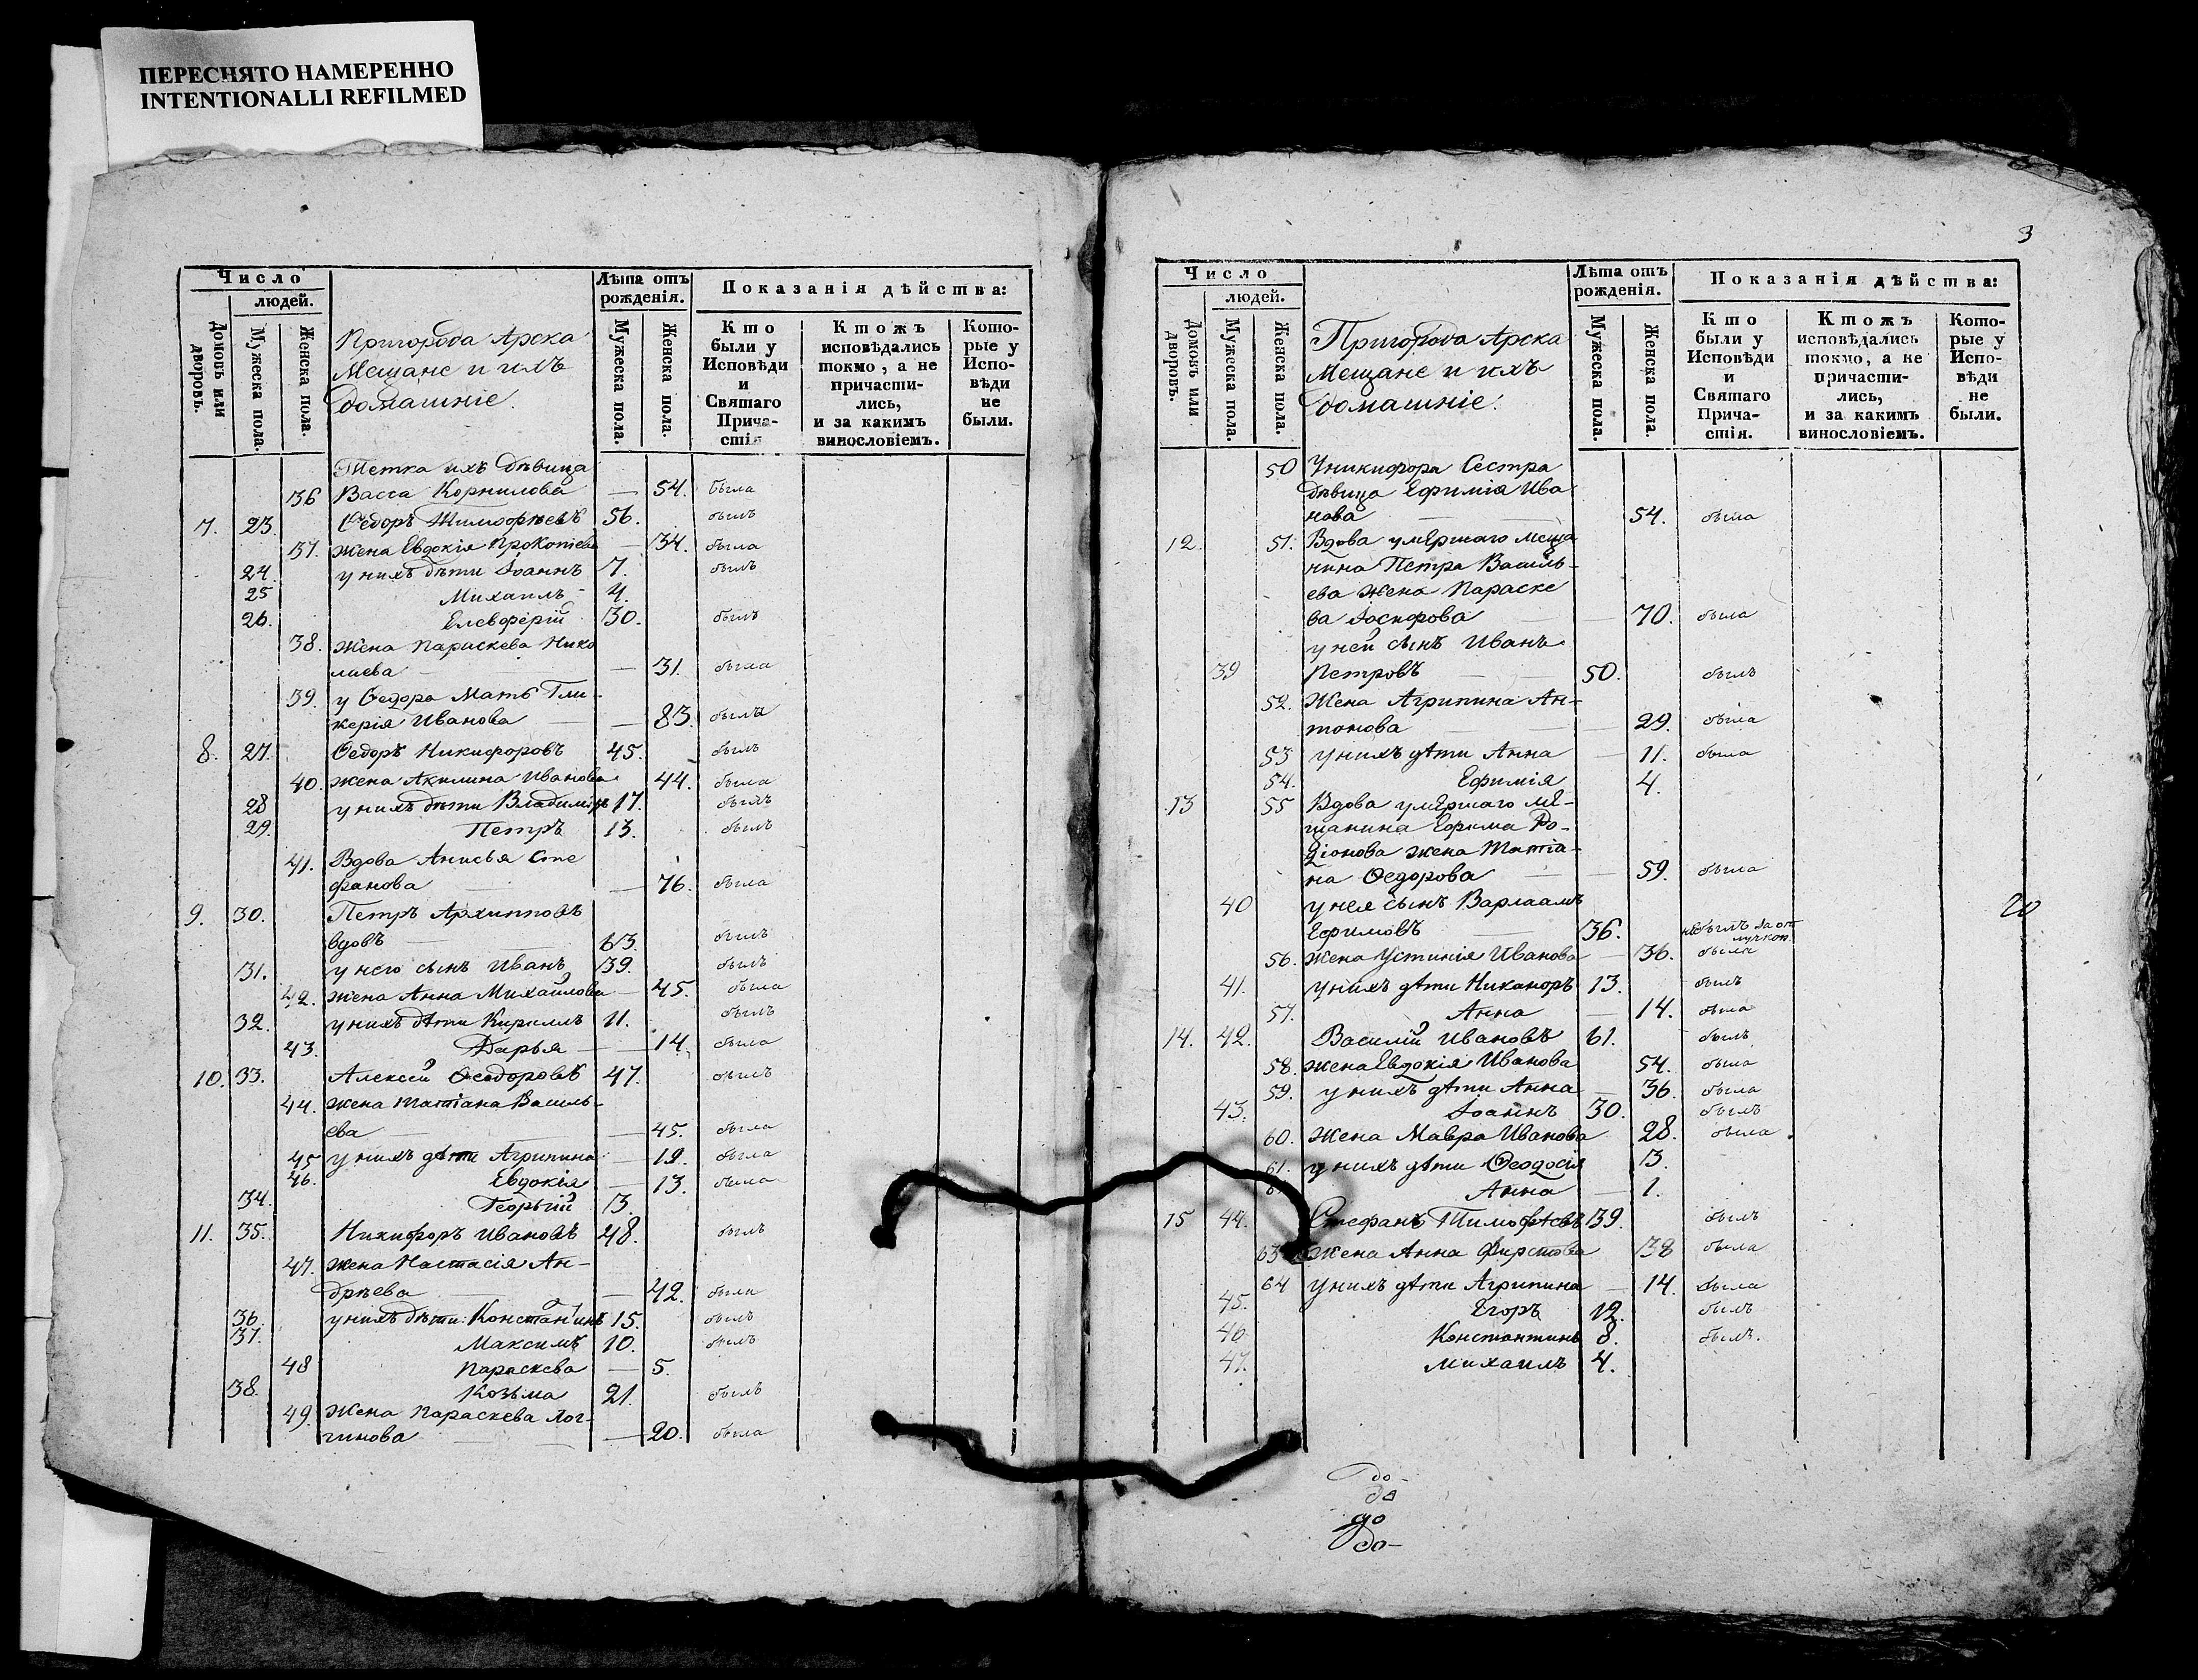 ПЕРЕСНЯТО НАМЕРЕННО
INTENTIONALLI REFILMED
Число
людей.
Домовъ или дворовъ.
Мужеска пола.
Женска пола.
Пригорода Арска
Мещане и ихъ
домашніе.
Лѣта отъ рожденія.
Мужеска пола.
Женска пола.
Показанія дѣйства:
Кто были у Исповѣди и Святаго Причастія
Ктожъ исповѣдались токмо, а не причастились, и за какимъ винословіемъ.
Которые у Исповѣди не были.
Тетка ихъ дѣвица
36 Васса Корнилова — 54. была
7. 23. Ѳедоръ Тимофѣевъ 56. былъ
37. жена Евдокія Прокопіева — 34. была
24. у нихъ дѣти Іоаннъ 7. былъ
25 Михаилъ 4.
26. Елевферій 30. былъ
38. жена Параскева Нико
лаева — 31. была
39. у Ѳедора Мать Гли-
керія Иванова — 83 была
8. 27. Ѳедоръ Никифоровъ 45. былъ
40. жена Акилина Иванова 44. была
28 у нихъ дѣти Владиміръ 17. былъ
29. Петръ 13. былъ
41. Вдова Анисья Сте
фанова — 76. была
9. 30. Петръ Архиповъ
вдовъ 63. былъ
31. у него сынъ Иванъ 39. былъ
42. жена Анна Михайлова — 45. была
32. у нихъ дѣти Кириллъ 11. былъ
43. Дарья — 14. была
10. 33. Алексѣй Ѳеодоровъ 47. былъ
44. жена Татіана Василь-
ева — 45. была
45 у нихъ дѣти Агрипина — 19. была
46. Евдокія — 13. была
34. Георгій 3.
11. 35. Никифоръ Ивановъ 48. былъ
47. жена Настасія Ан-
дрѣева — 42. была
36. у нихъ дѣти: Константинъ 15. былъ
37. Максимъ 10. былъ
48 Параскева — 5.
38. Козьма 21. былъ
49. жена Параскева Лог-
гинова — 20. была
3
Число
людей.
Домовъ или дворовъ.
Мужеска пола.
Женска пола.
Пригорода Арска
Мещане и ихъ
домашніе.
Лѣта отъ рожденія.
Мужеска пола.
Женска пола.
Показанія дѣйства:
Кто были у Исповѣди и Святаго Причастія.
Ктожъ исповѣдались токмо, а не причастились, и за какимъ винословіемъ.
Которые у Исповѣди не были.
50 У Никифора Сестра
дѣвица Ефимія Ива
нова — 54. была
12. 51. Вдова умершаго меща
нина Петра Василь-
ева жена Параске
ва Іосифова — 70. была
у ней сынъ Иванъ
39 Петровъ 50. былъ
52. Жена Агрипина Ан-
тонова — 29. была
53 у нихъ дѣти Анна — 11. была
54. Ефимія 4.
13 55 Вдова умершаго ме-
щанина Ефима Ро-
діонова жена Татіа-
на Ѳедорова — 59. была
40 у нея сынъ Варлаамъ
Ефимовъ 36. небылъ за от
лучкою
56. жена Устинія Иванова — 36. была
41. у нихъ дѣти Никаноръ 13. былъ
57. Анна — 14. была
14. 42. Василій Ивановъ 61. былъ
58. жена Евдокія Иванова 54. была
59. у нихъ дѣти Анна — 36. была
43. Іоаннъ 30. былъ
60. Жена Мавра Иванова 28. была
61. у нихъ дѣти Ѳеодосія 3.
Анна — 1.
15 44. Стефанъ Тимофѣевъ 39. былъ
63 жена Анна Фирстова 38 была
64 у нихъ дѣти Агрипина — 14. была
45. Егоръ 12. былъ
46. Константинъ 8. былъ.
47. Михаилъ 4.
20
до-
да
до
до-